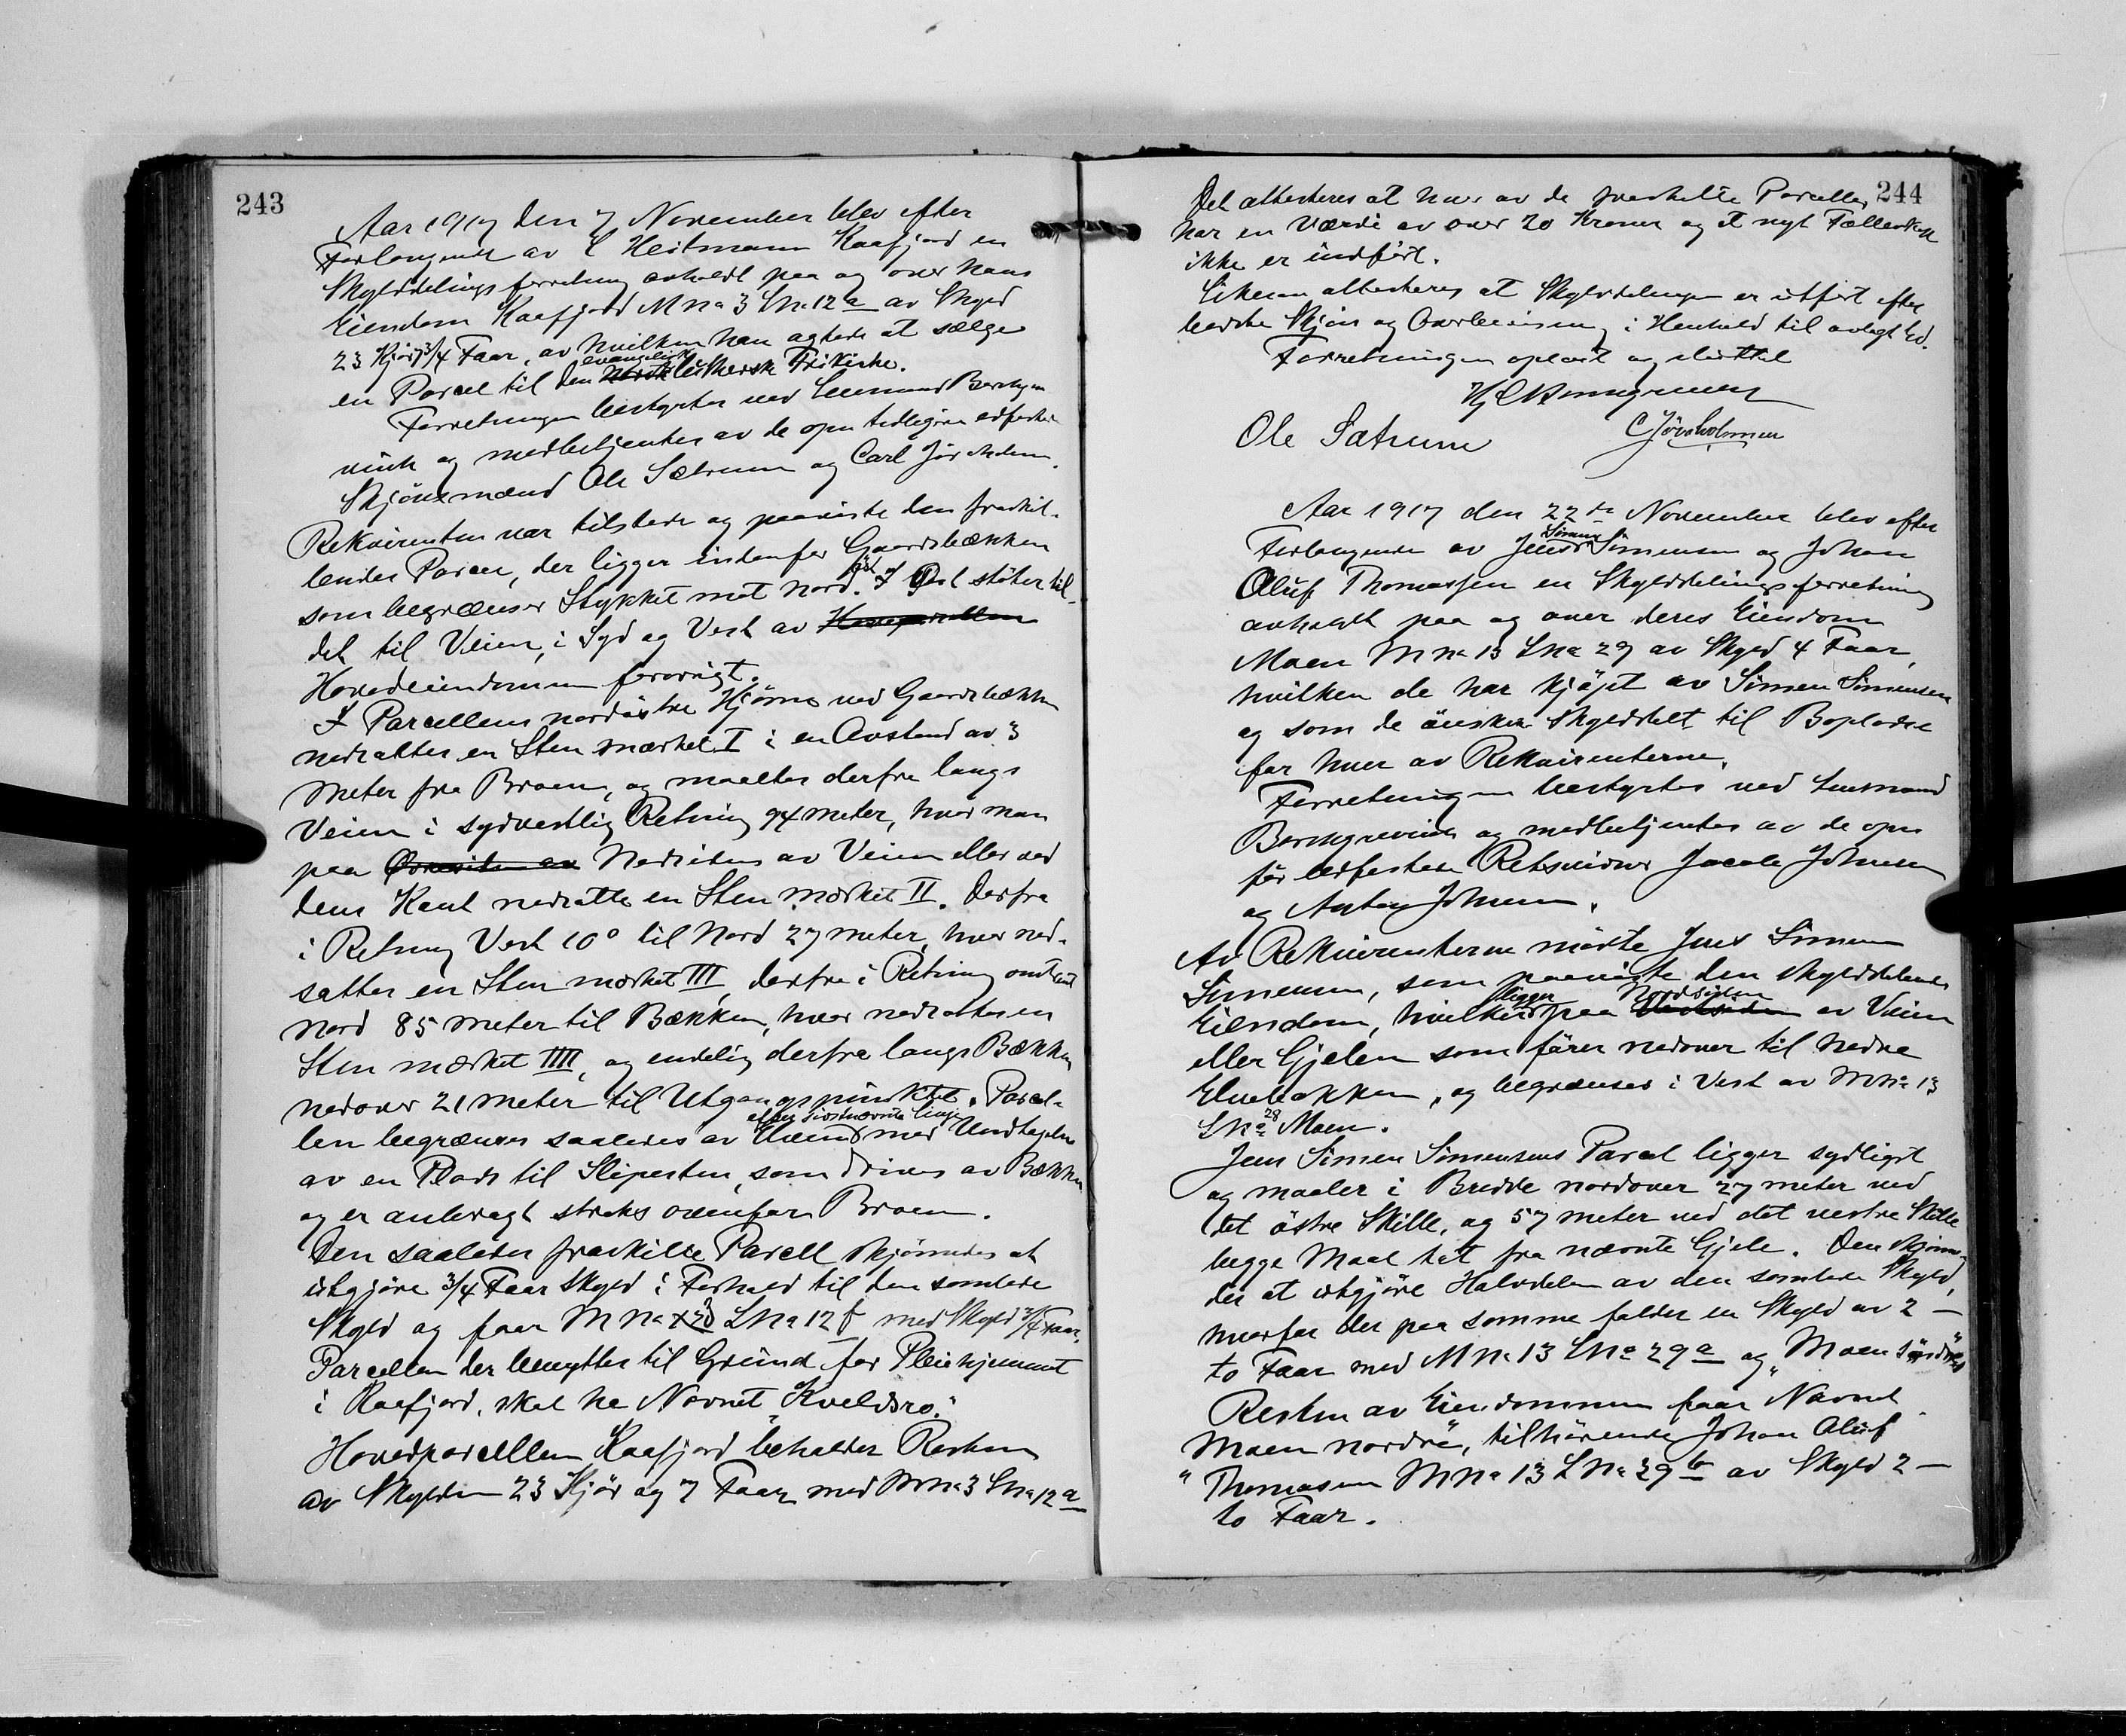 243
Aar 1917 den 7 November blev efter
Forlangende av C Heitmann Kaafjord en
Skylddelingsforretning avholdt paa og over hans
Eiendom Kaafjord M No 3 L No 12 a av Skyld
23 Kjør 7 3/4 Faar, av hvilken han agtede at sælge
en Parcel til den evangelisk luthersk Frikirke.
Forretningen bestyrtes ved Lensmand Berchgre
vink og medbetjentes av de opn tidligere edfæstede
Skjønsmænd Ole Sætrum og Carl
Rekvirenten var tilstede og paaviste den fraskil-
lendes Parcel, der ligger indenfor Gaardsbækken
som begrænser Stykket mot nord. I Øst støter til-
det til Veien, i Syd og Vest av
Hovedeiendommen forøvrigt.
I Parcellens nordøstre Hjørne ved Gaardsbækken
nedsattes en Sten mærket I i en Avstand av 3
Meter fra Broen, og maaltes derfra langs
Veien i sydvestlig Retning 94 meter, hvor man
paa Øvresiden av Nedsiden av Veien eller ved
dens Kant nedsatte en Sten mærket II. Derfra
i Retning Vest 10° til Nord 27 meter, hvor ned-
sattes en Sten mærket III, derfra i Retning omtrent
Nord 85 meter til Bækken, hvor nedsattes en
Sten mærket IIII, og endelig derfra langs Bækken
nedover 21 meter til Utgangspunktet. Parcel-
len begrænses saaledes av efter sidstnævnte Linje med Undtagelse
av en Plads til Slipesten, som drives av Bækken
og er anbragt straks ovenfor Broen.
Den saaledes fraskilte Parcell skjønnedes at
utgjøre 3/4 Faar Skyld i Forhold til den samlede
Skyld og faar M No 3 L No 12 f med Skyld 3/4 Faar.
Parcellen der benyttes til Grund for Pleiehjemmet
i Kaafjord, skal ha Navnet "Kveldsro."
Hovedparcellen Kaafjord beholder Resten
av Skylden 23 Kjør og 7 Faar med M No 3 L No 12 a
244
Det attesteres at hver av de fraskilte Parceller
har en Værdi av over 20 Kroner og at nyt Fællesskap
ikke er indført.
Likesaa attesteres at Skylddelingen er utført efter
bedste Skjøn og Overbevisning i Henhold til avlagt Ed.
Forretningen oplæst og sluttet
Ole Satrum
Aar 1917 den 22de November blev efter
Forlangende av Jens Simen Simensen og Johan
Oluf Thomassen en Skylddelingsforretning
avholdt paa og over deres Eiendom
Moen M No 13 L No 29 av Skyld 4 Faar,
hvilken de har kjøpt av Simen Simensen
og som de ønsker skylddelt til Boplads
for hver av Rekvirenterne.
Forretningen bestyrtes ved Lensmand
Berchgrevink og medbetjentes av de opn
før edfæstede Retsvidner Jacob Johnsen
og Anton Johnsen.
Av Rekvirenterne møtte Jens Simen
Simensen, som paaviste den skylddelende
Eiendom, hvilken ligger paa Nordsiden av Veien
eller Gjelen som fører nedover til Nedre
Elvebakken, og begrænses i Vest av M No 13
L No 28 Moen.
Jens Simen Simensens Parcel ligger sydligst
og maaler i Bredde nordover 27 meter ved
det østre Skille, og 57 meter ved det vestre Skille
begge Maal tat fra nævnte Gjele. Den skjønne-
des at utgjøre Halvdelen av den samlede Skyld,
hvorfor der paa samme falder en Skyld av 2 —
to Faar med M No 13 L No 29 a og "Moen søndre"
Resten av Eiendommen faar Navnet
"Moen nordre", tilhørende Johan Oluf
Thomassen M No 13 L No 29 b av Skyld 2 —
to Faar.